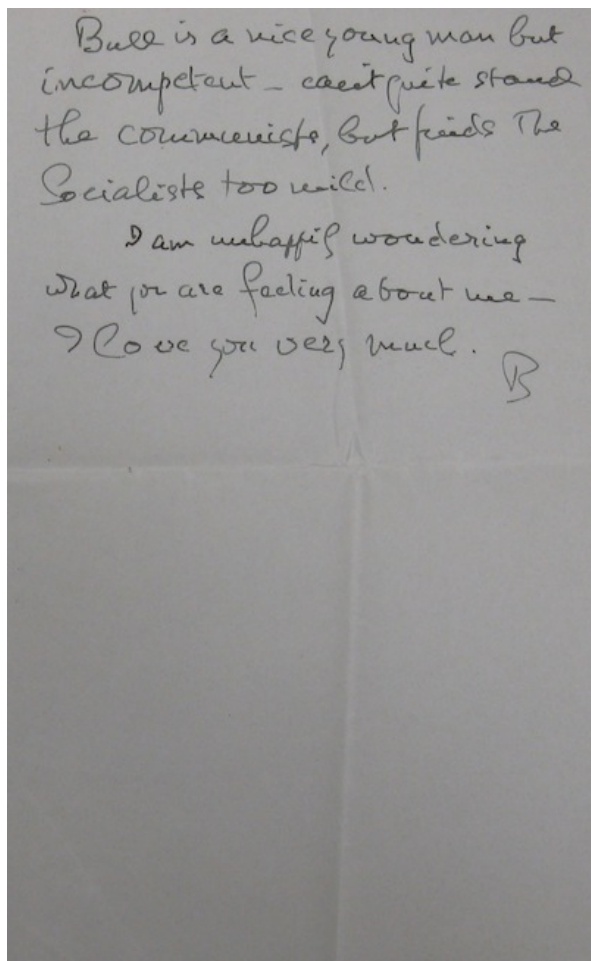 Bull is a nice young man but
incompetent – can't quite stand
the communists, but finds The
Socialists too mild.
I am unhappily wondering
what you are feeling about me –
I love you very much.
B